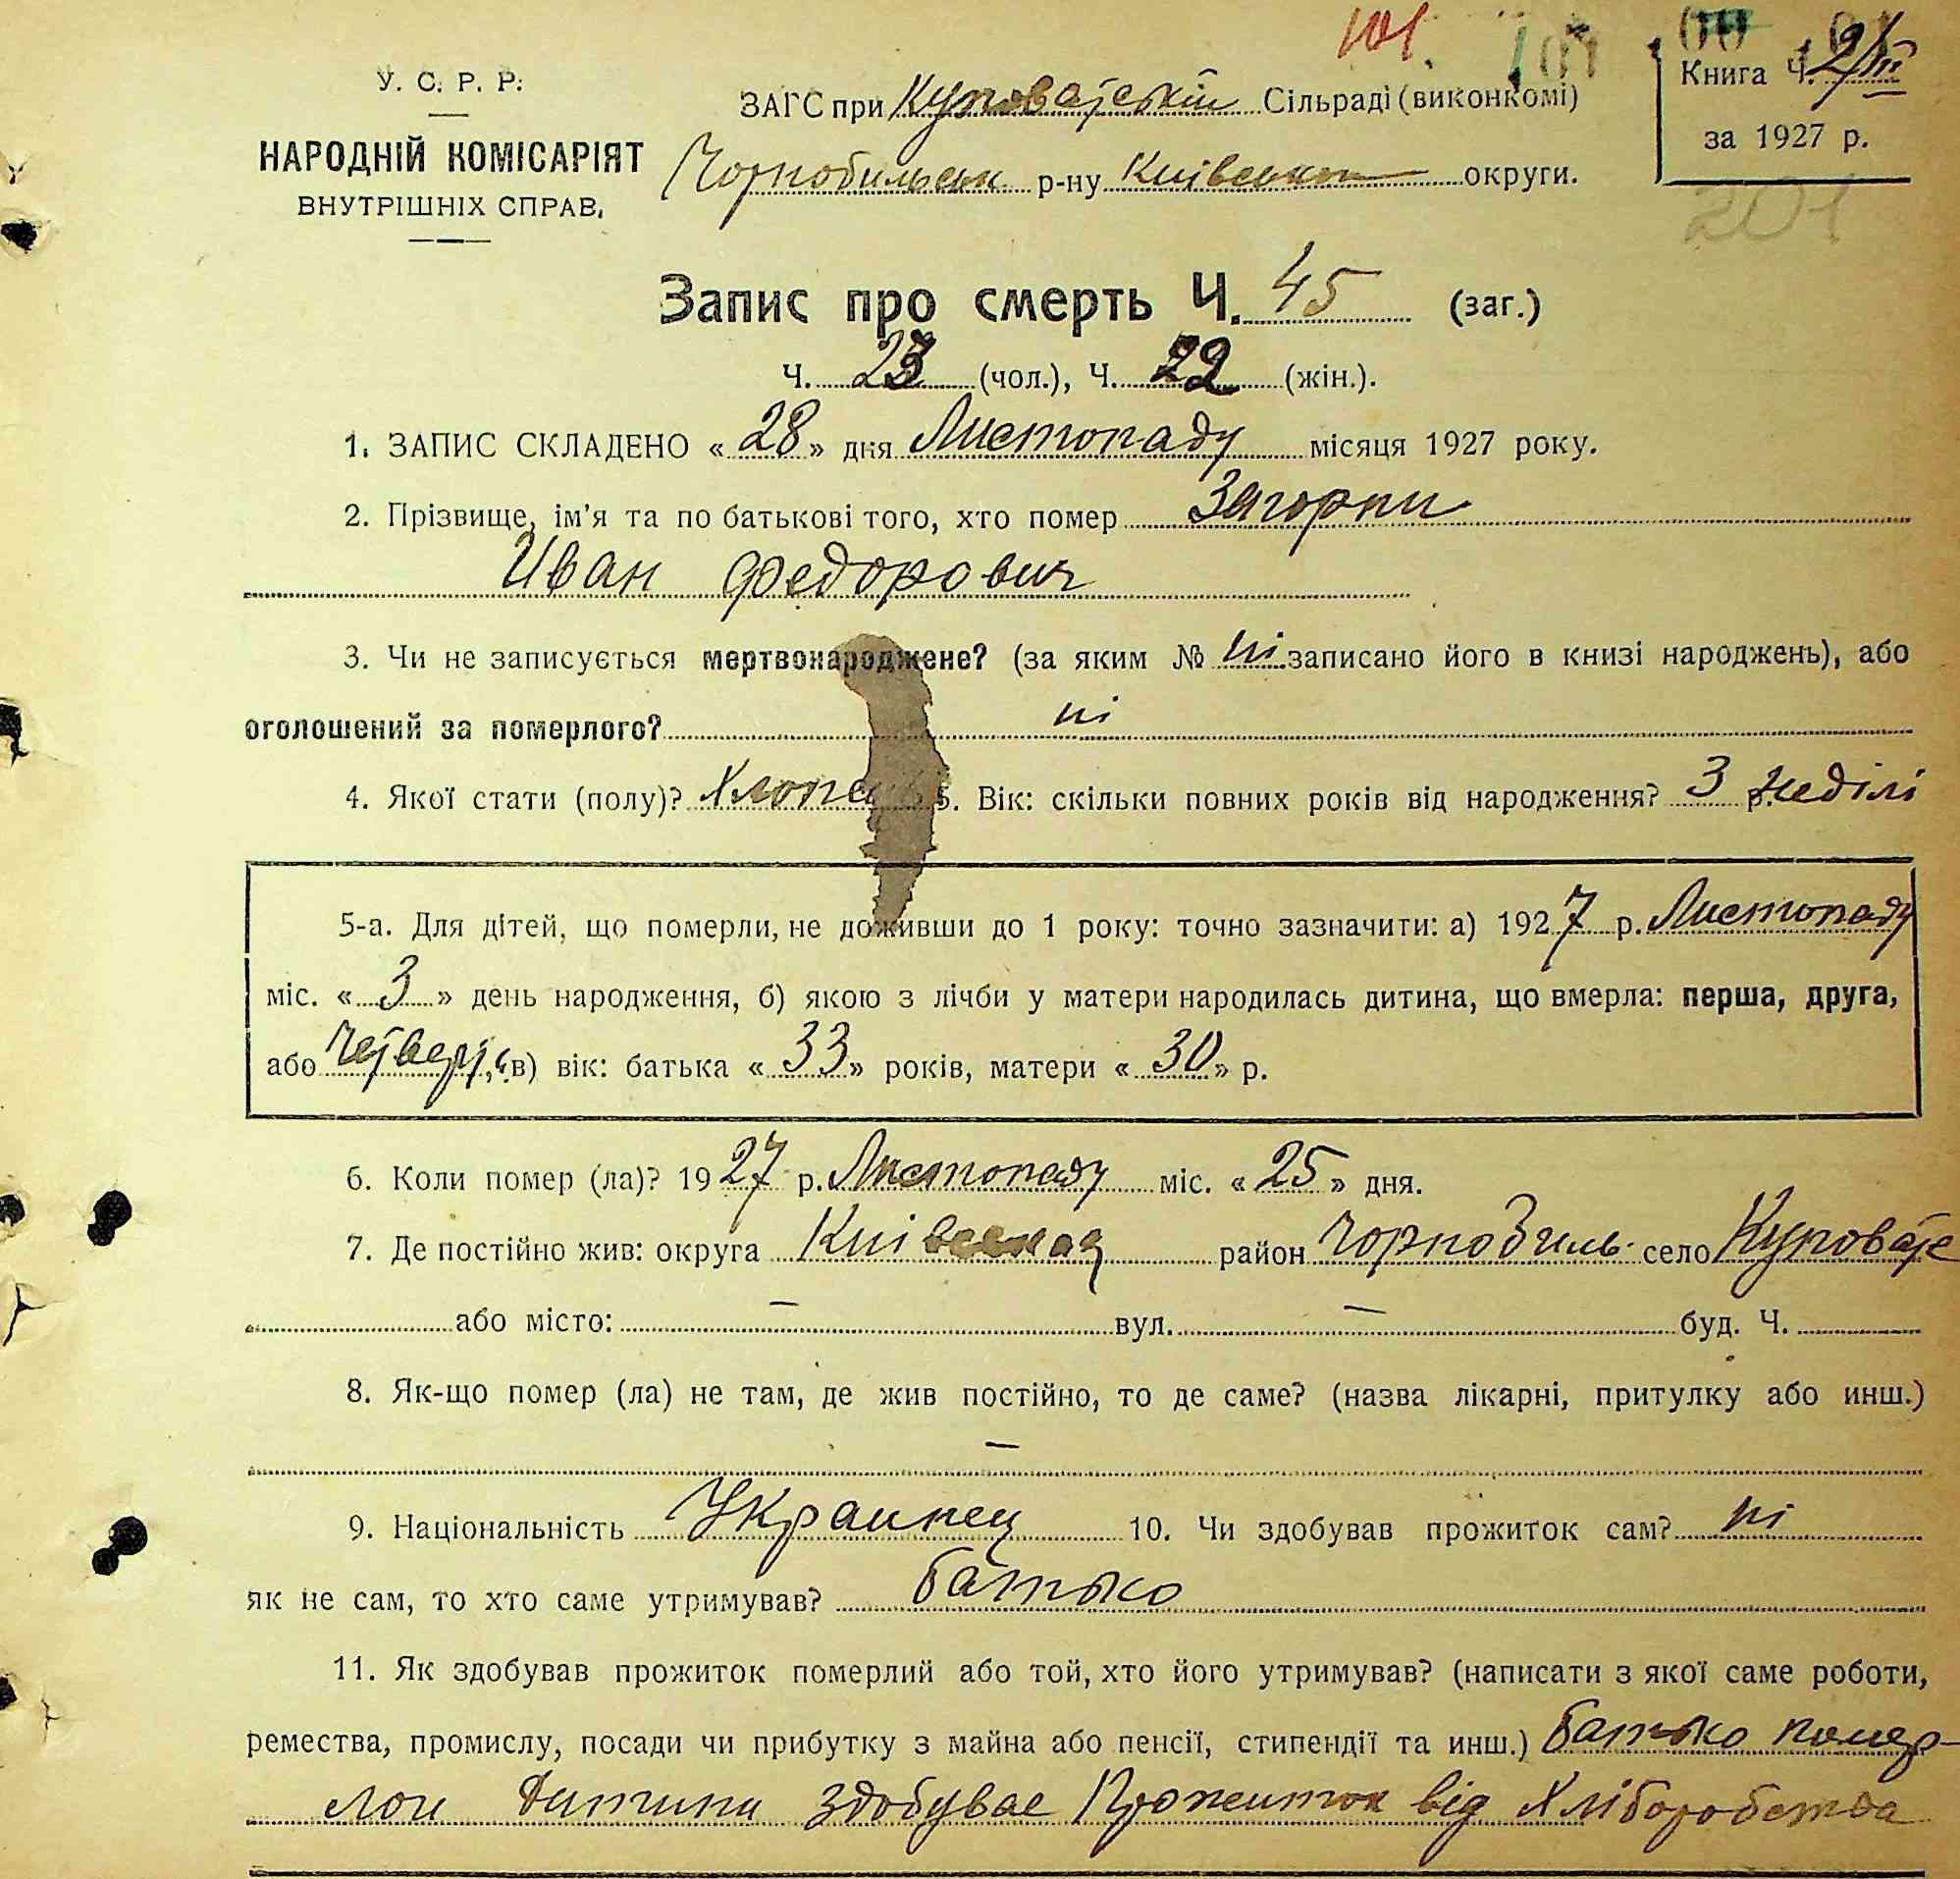 101.
У. С. Р. Р.
НАРОДНІЙ КОМІСАРІЯТ
ВНУТРІШНІХ СПРАВ.
ЗАГС при Куповатській Сільраді (виконкомі)
Чорнобильськ р-ну Київської округи.
Книга Ч. 2/III
за 1927 р.
201
Запис про смерть Ч. 45 (заг.)
Ч. 23 (чол.), Ч. 22 (жін.).
1. ЗАПИС СКЛАДЕНО « 28 » дня Листопаду місяця 1927 року.
2. Прізвище, ім'я та по батькові того, хто помер
Иван Федорович
3. Чи не записується мертвонароджене? (за яким № ні записано його в книзі народжень), або
оголошений за померлого? ні
4. Якої стати (полу)? Хлопець 5. Вік: скільки повних років від народження? 3 р. неділі
5-а. Для дітей, що померли, не доживши до 1 року: точно зазначити: а) 1927 р. Листопаду
міс. « 3 » день народження, б) якою з лічби у матери народилась дитина, що вмерла: перша, друга,
або в) вік: батька « 33 » років, матери « 30 » р.
6. Коли помер (ла)? 1927 р. Листопаду міс. « 25 » дня.
7. Де постійно жив: округа район Чорнобиль село Куповате
або місто: — вул. — буд. Ч.
8. Як-що помер (ла) не там, де жив постійно, то де саме? (назва лікарні, притулку або инш.)
—
9. Національність Украинец 10. Чи здобував прожиток сам? ні
як не сам, то хто саме утримував? батько
11. Як здобував прожиток померлий або той, хто його утримував? (написати з якої саме роботи,
ремества, промислу, посади чи прибутку з майна або пенсії, стипендії та инш.) батько помер-
лой дитини здобувае Прожиток від Хліборобства